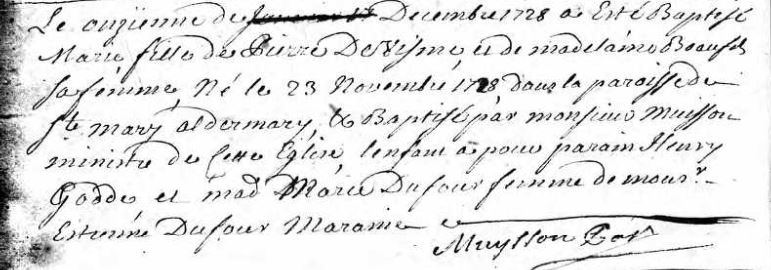 Le onziénne de Janvier 17 Decembre 1728 a Esté Baptisé
Marie fille de Pierre DeVisme, et de madelaine Beaufils
sa fémme, Né le 23 Novembre 1728 dans la paroisse de
Ste mary aldermary, & Baptisé par monsieur Muysson
ministre de Cette Eglise, l'enfant a pour parain Henry
Godde et mad Marie Dufour femme de monsr
Estienne Dufour Maraine
Muysson Pasr